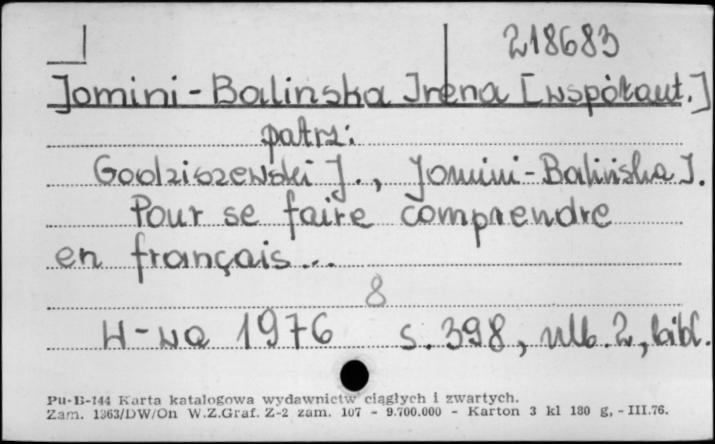 218683
Jomini-Balinska Irena [współaut.]
patrz:
Godziszewski J., Jomini-Balińska J.
Pour se faire comprendre
en français...
8
W-wa 1976 s. 398, nlb. 2, bibl.
Pu-B-144 Karta katalogowa wydawnictw ciągłych i zwartych.
Zam. 1363/DW/On W.Z.Graf. Z-2 zam. 107 - 9.700.000 - Karton 3 kl 180 g, - III.76.